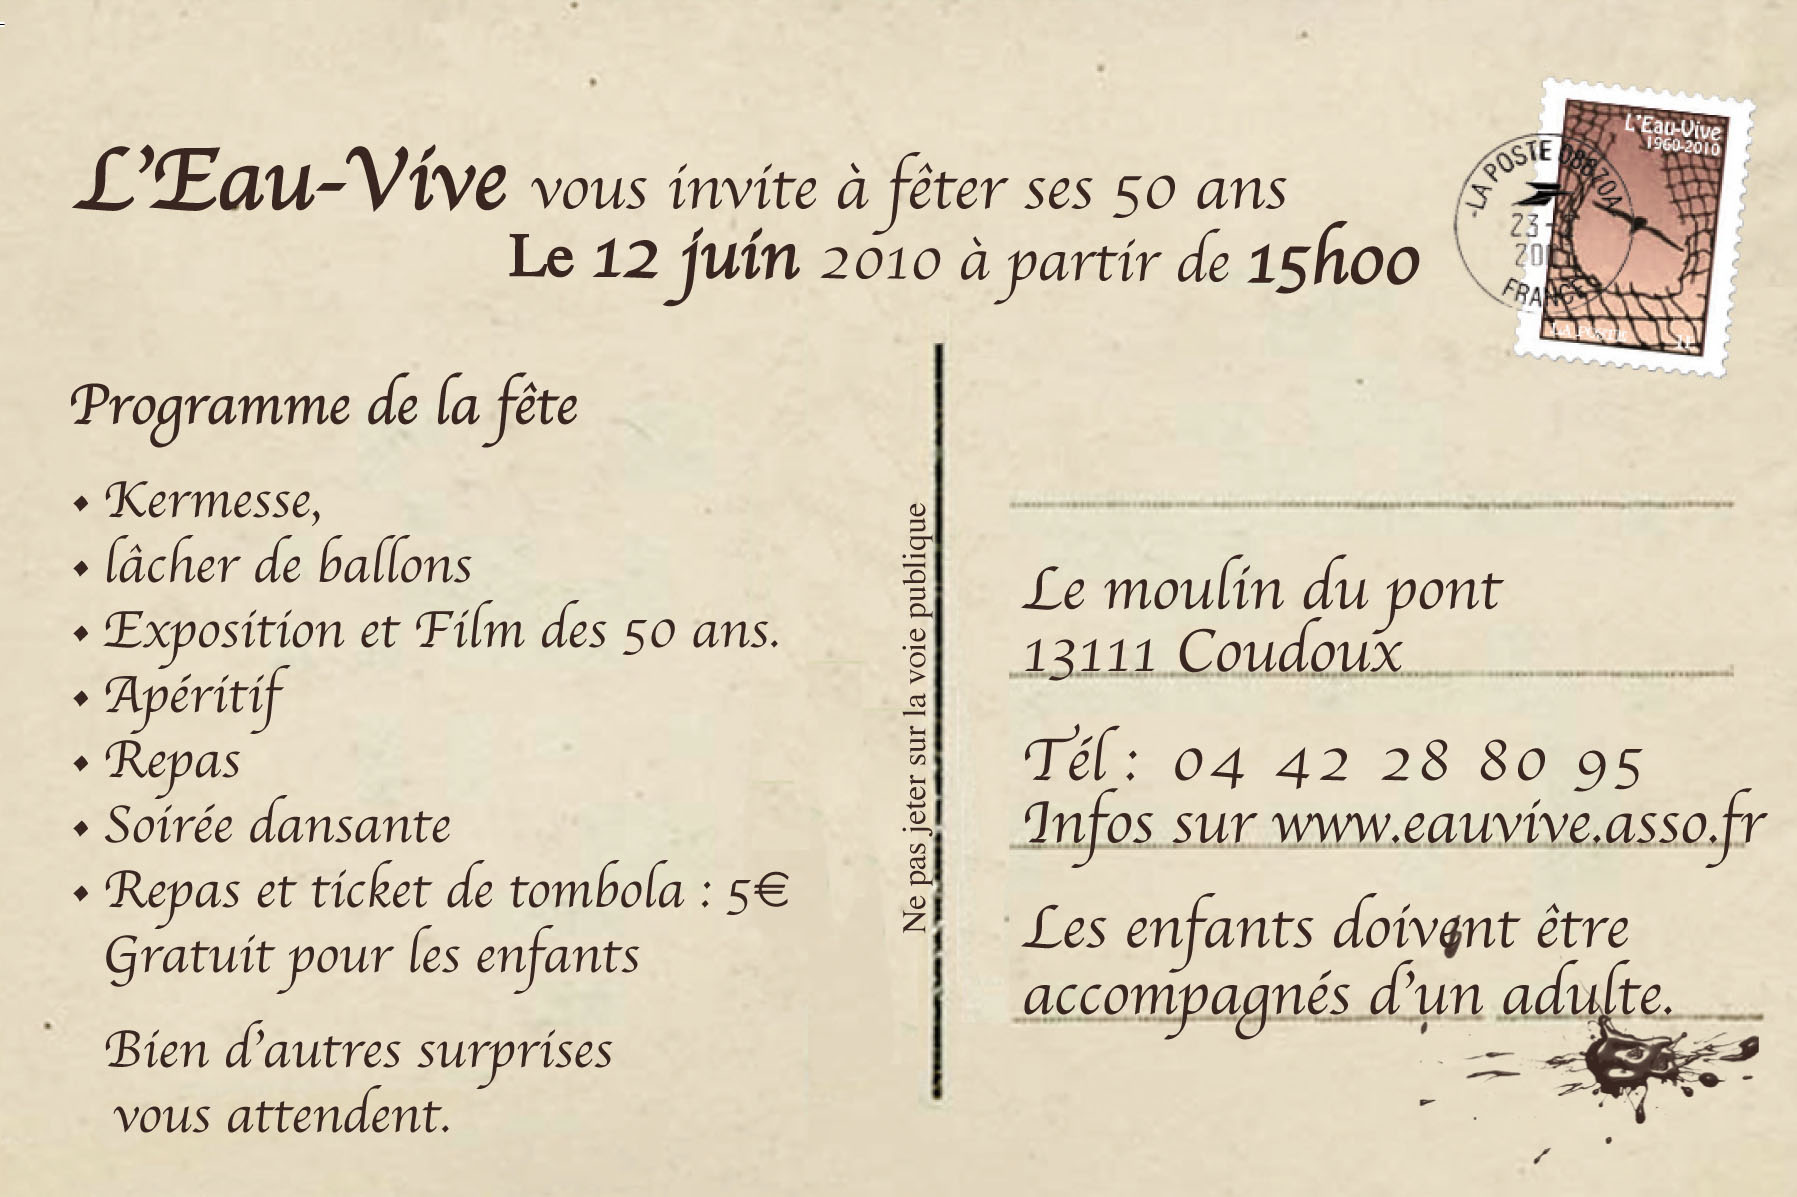 L'Eau-Vive vous invite à fêter ses 50 ans
Le 12 juin 2010 à partir de 15h00
L'Eau-Vive
1960-2010
LA POSTE
-LA POSTE 08870A
23-
200
FRANCE
Programme de la fête
• Kermesse,
• lâcher de ballons
• Exposition et Film des 50 ans.
• Apéritif
• Repas
• Soirée dansante
• Repas et ticket de tombola : 5€
Gratuit pour les enfants
Bien d'autres surprises
vous attendent.
Ne pas jeter sur la voie publique
Le moulin du pont
13111 Coudoux
Tél : 04 42 28 80 95
Infos sur www.eauvive.asso.fr
Les enfants doivent être
accompagnés d'un adulte.